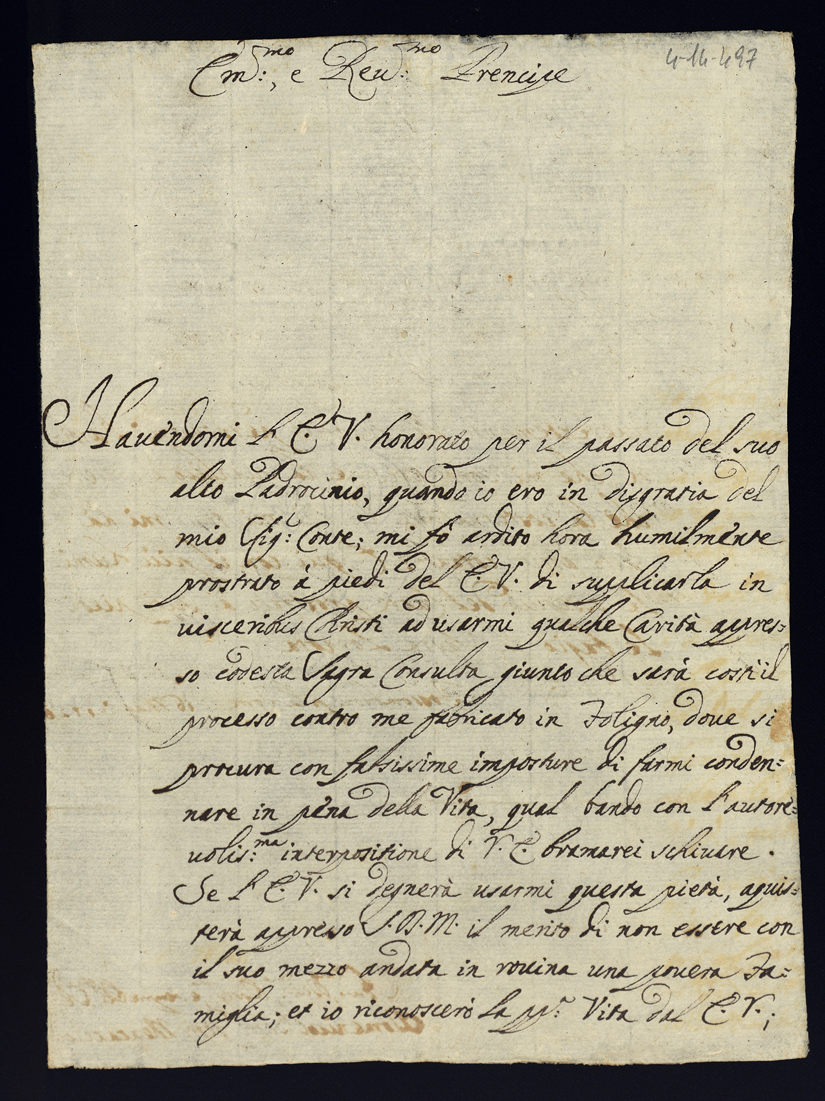 Em:mo, e Reu:mo Prencipe
4-14-497
Hauendomi l'E.V. honorato per il passato del suo
alto Padrocinio, quando io ero in disgratia del
mio Sig:r Conte; mi fò ardito hora humilmente
prostrato à piedi del E.V. di supplicarla in
visceribus Christi ad usarmi qualche Carità appres=
so codesta Sagra Consulta, giunto che sarà costi il
processo contro me fabricato in Foligno, dove si
procura con falsissime imposture di farmi conden=
nare in pena della Vita, qual bando con l'autore=
uolis:ma interpositione di V.E. bramarei schiuare.
Se l'E.V. si degnerà usarmi questa pietà, aquis=
terà appresso S.D.M. il merito di non essere con
il suo mezzo andata in rouina una pouera Fa=
miglia; et io riconoscerò la pp:a Vita dal E.V.;